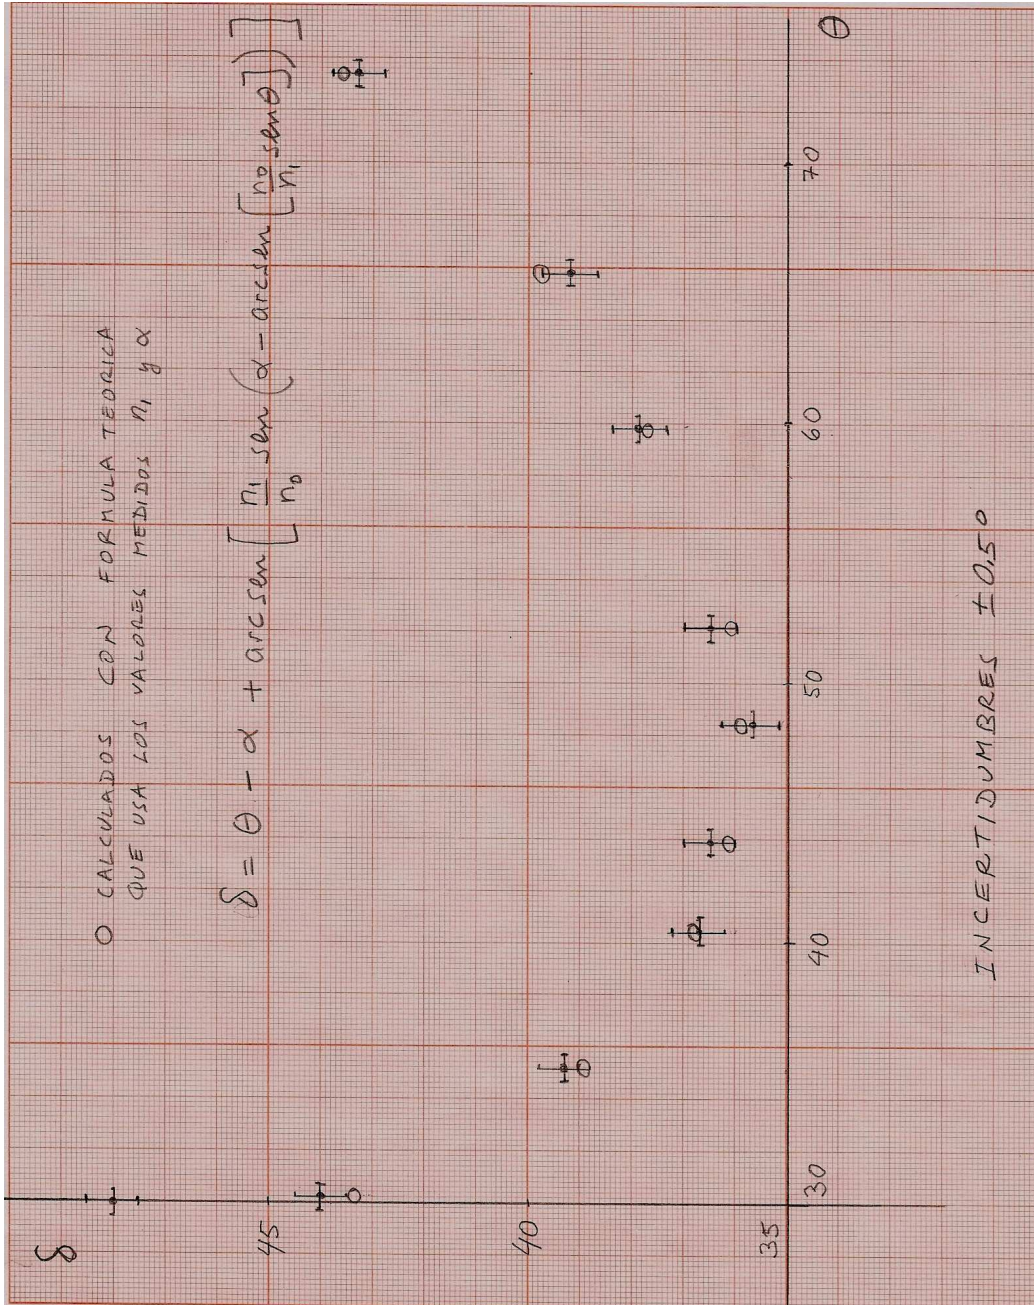 O CALCULADOS CON FORMULA TEORICA
QUE USA LOS VALORES MEDIDOS n₁ y α
δ = θ - α + arcsen [ n₁/n₀ sen (α - arcsen [ n₀/n₁ senθ ] ) ]
δ
45
40
35
30
40
50
60
70
θ
INCERTIDUMBRES ±0.5°